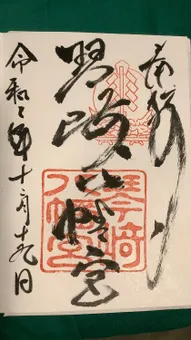 奉拝
琴崎八幡宮
琴崎
八幡宮
令和 年十 月十九日